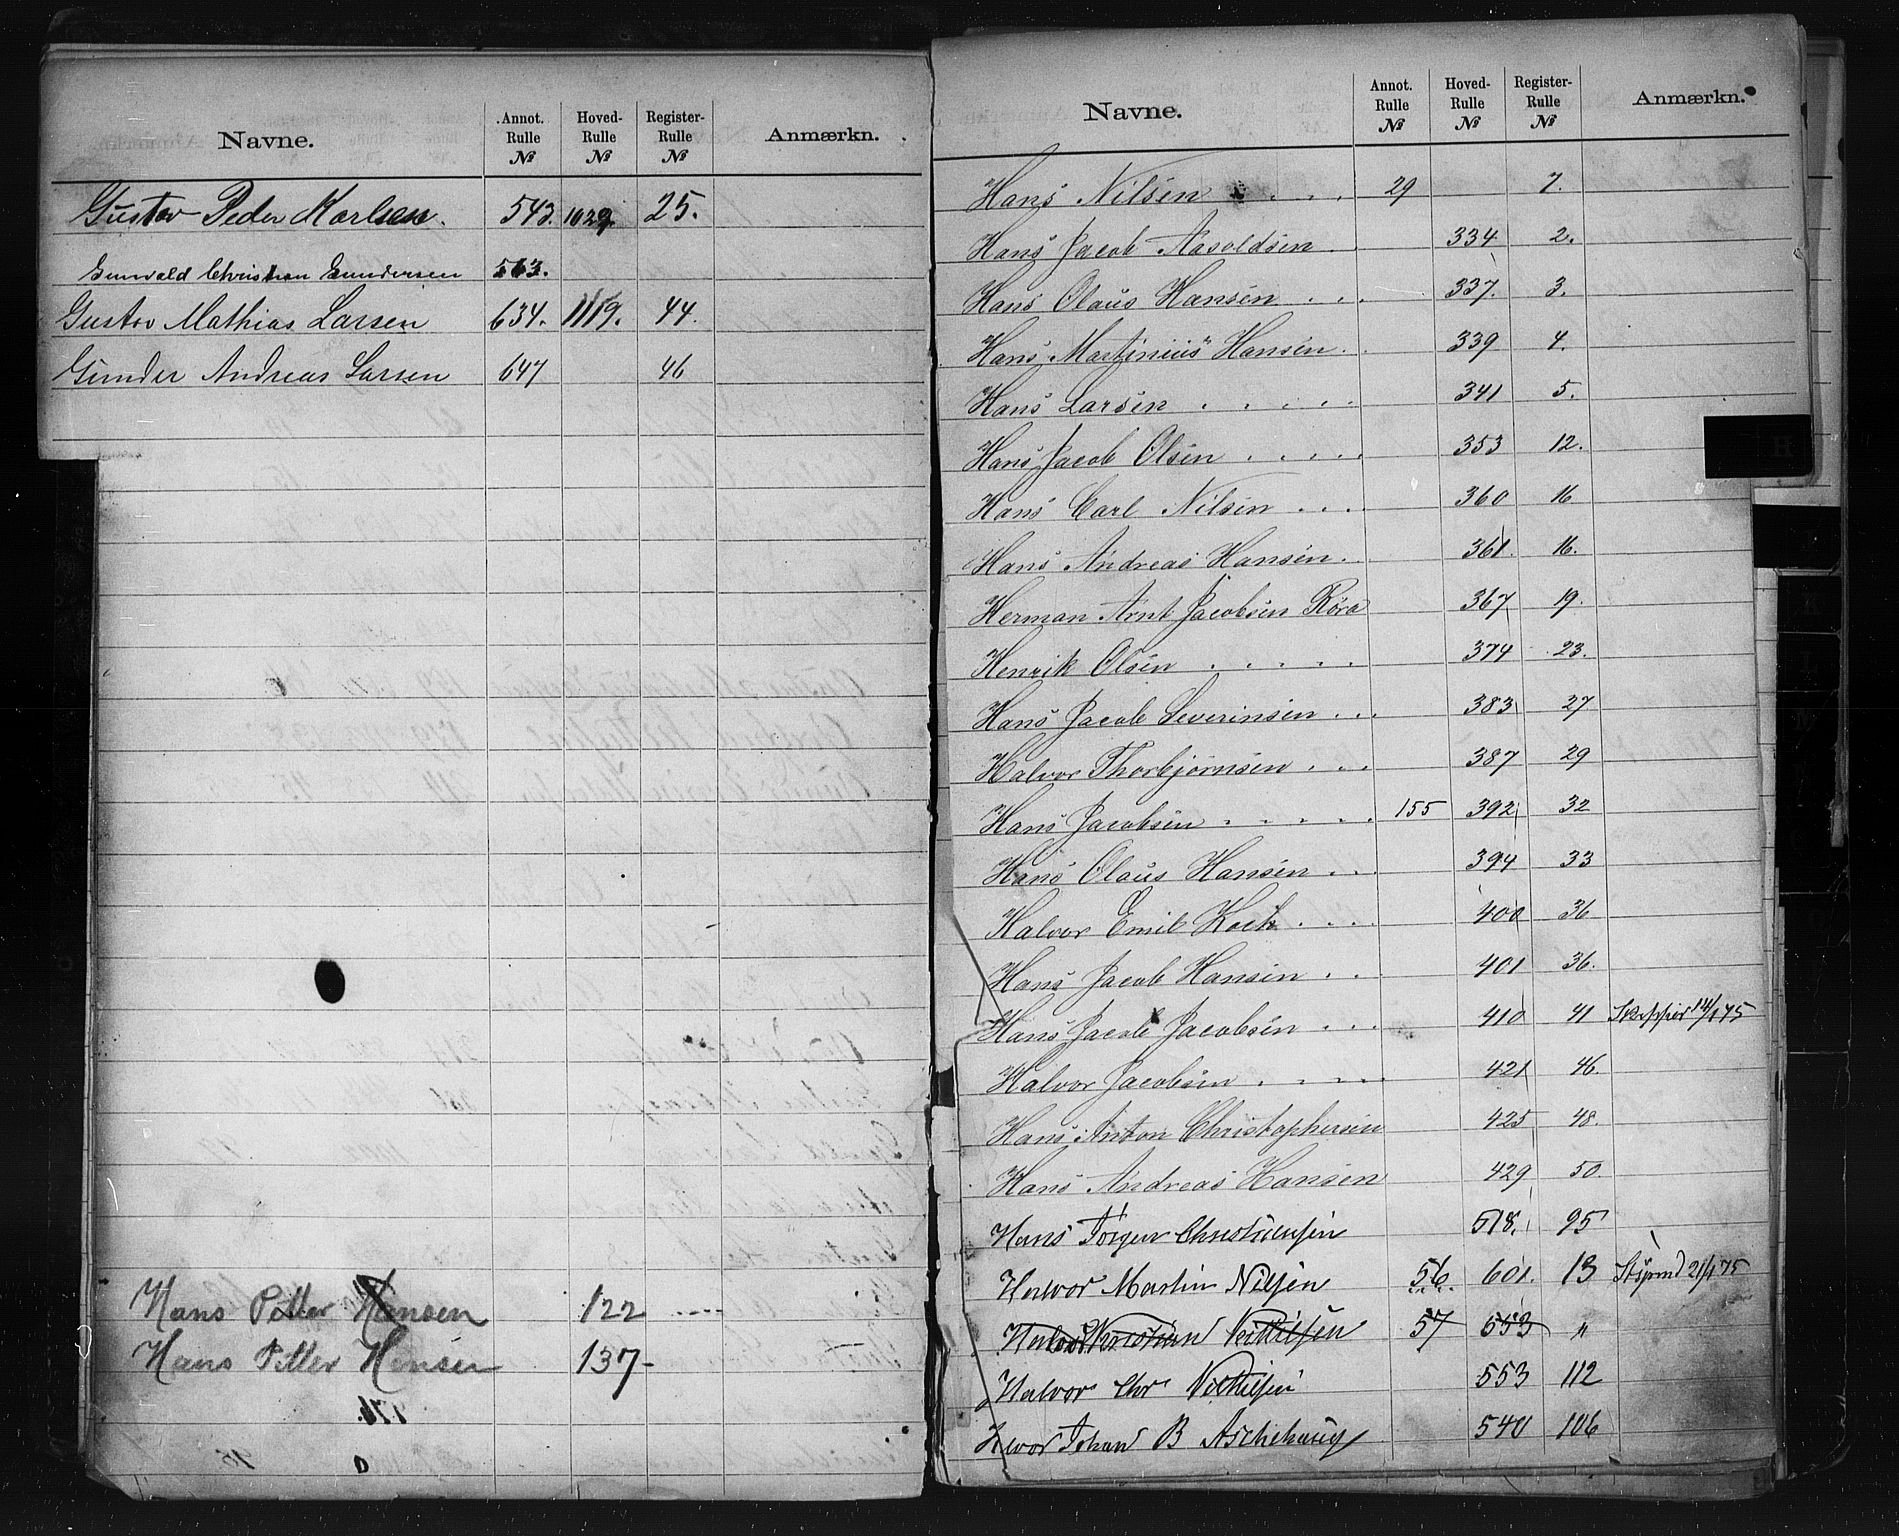 Navne. Annot. Rulle № Hoved-Rulle № Register-Rulle № Anmærkn.
Gustav Peder Karlsen. 543. 1029. 25.
Gunvald Christian Gundersen 563.
Gustav Mathias Larsen 634. 1119. 44.
Gunder Andreas Larsen 647 46
Hans Petter Hansen 122
Hans Petter Hansen 137
Navne. Annot. Rulle № Hoved-Rulle № Register-Rulle № Anmærkn.
Hans Nilsen . . . 29 7.
Hans Jacob Aasoldsen 334 2.
Hans Olaus Hansen . . . 337. 3.
Hans Martinius Hansen . . 339 4.
Hans Larsen . . . . . 341 5.
Hans Jacob Olsen . . . . . 353 12.
Hans Carl Nilsen . . . . 360 16
Hans Andreas Hansen . . 361. 16.
Herman Arnt Jacobsen Röra 367 19.
Henrik Olsen . . . . . 374 23.
Hans Jacob Severinsen . . . 383 27
Halvor Thorbjørnsen . . . 387 29
Hans Jacobsen . . . . . 155 392 32
Hans Olaus Hansen . . . 394 33
Halvor Emil Koch . . . . 400 36
Hans Jacob Hansen . . . 401 36.
Hans Jacob Jacobsen . . . 410 41 Skipper 14/1 75
Halvor Jacobsen . . . . 421 46.
Hans Anton Christophersen 425 48.
Hans Andreas Hansen 429 50.
Hans Jörgen Christiensen 518. 95
Halvor Martin Nilsen 56 601. 13 Styrmd 21/1 75
57 553 "
Halvor Chr 553 112
Johan B Aschehoug 540 106